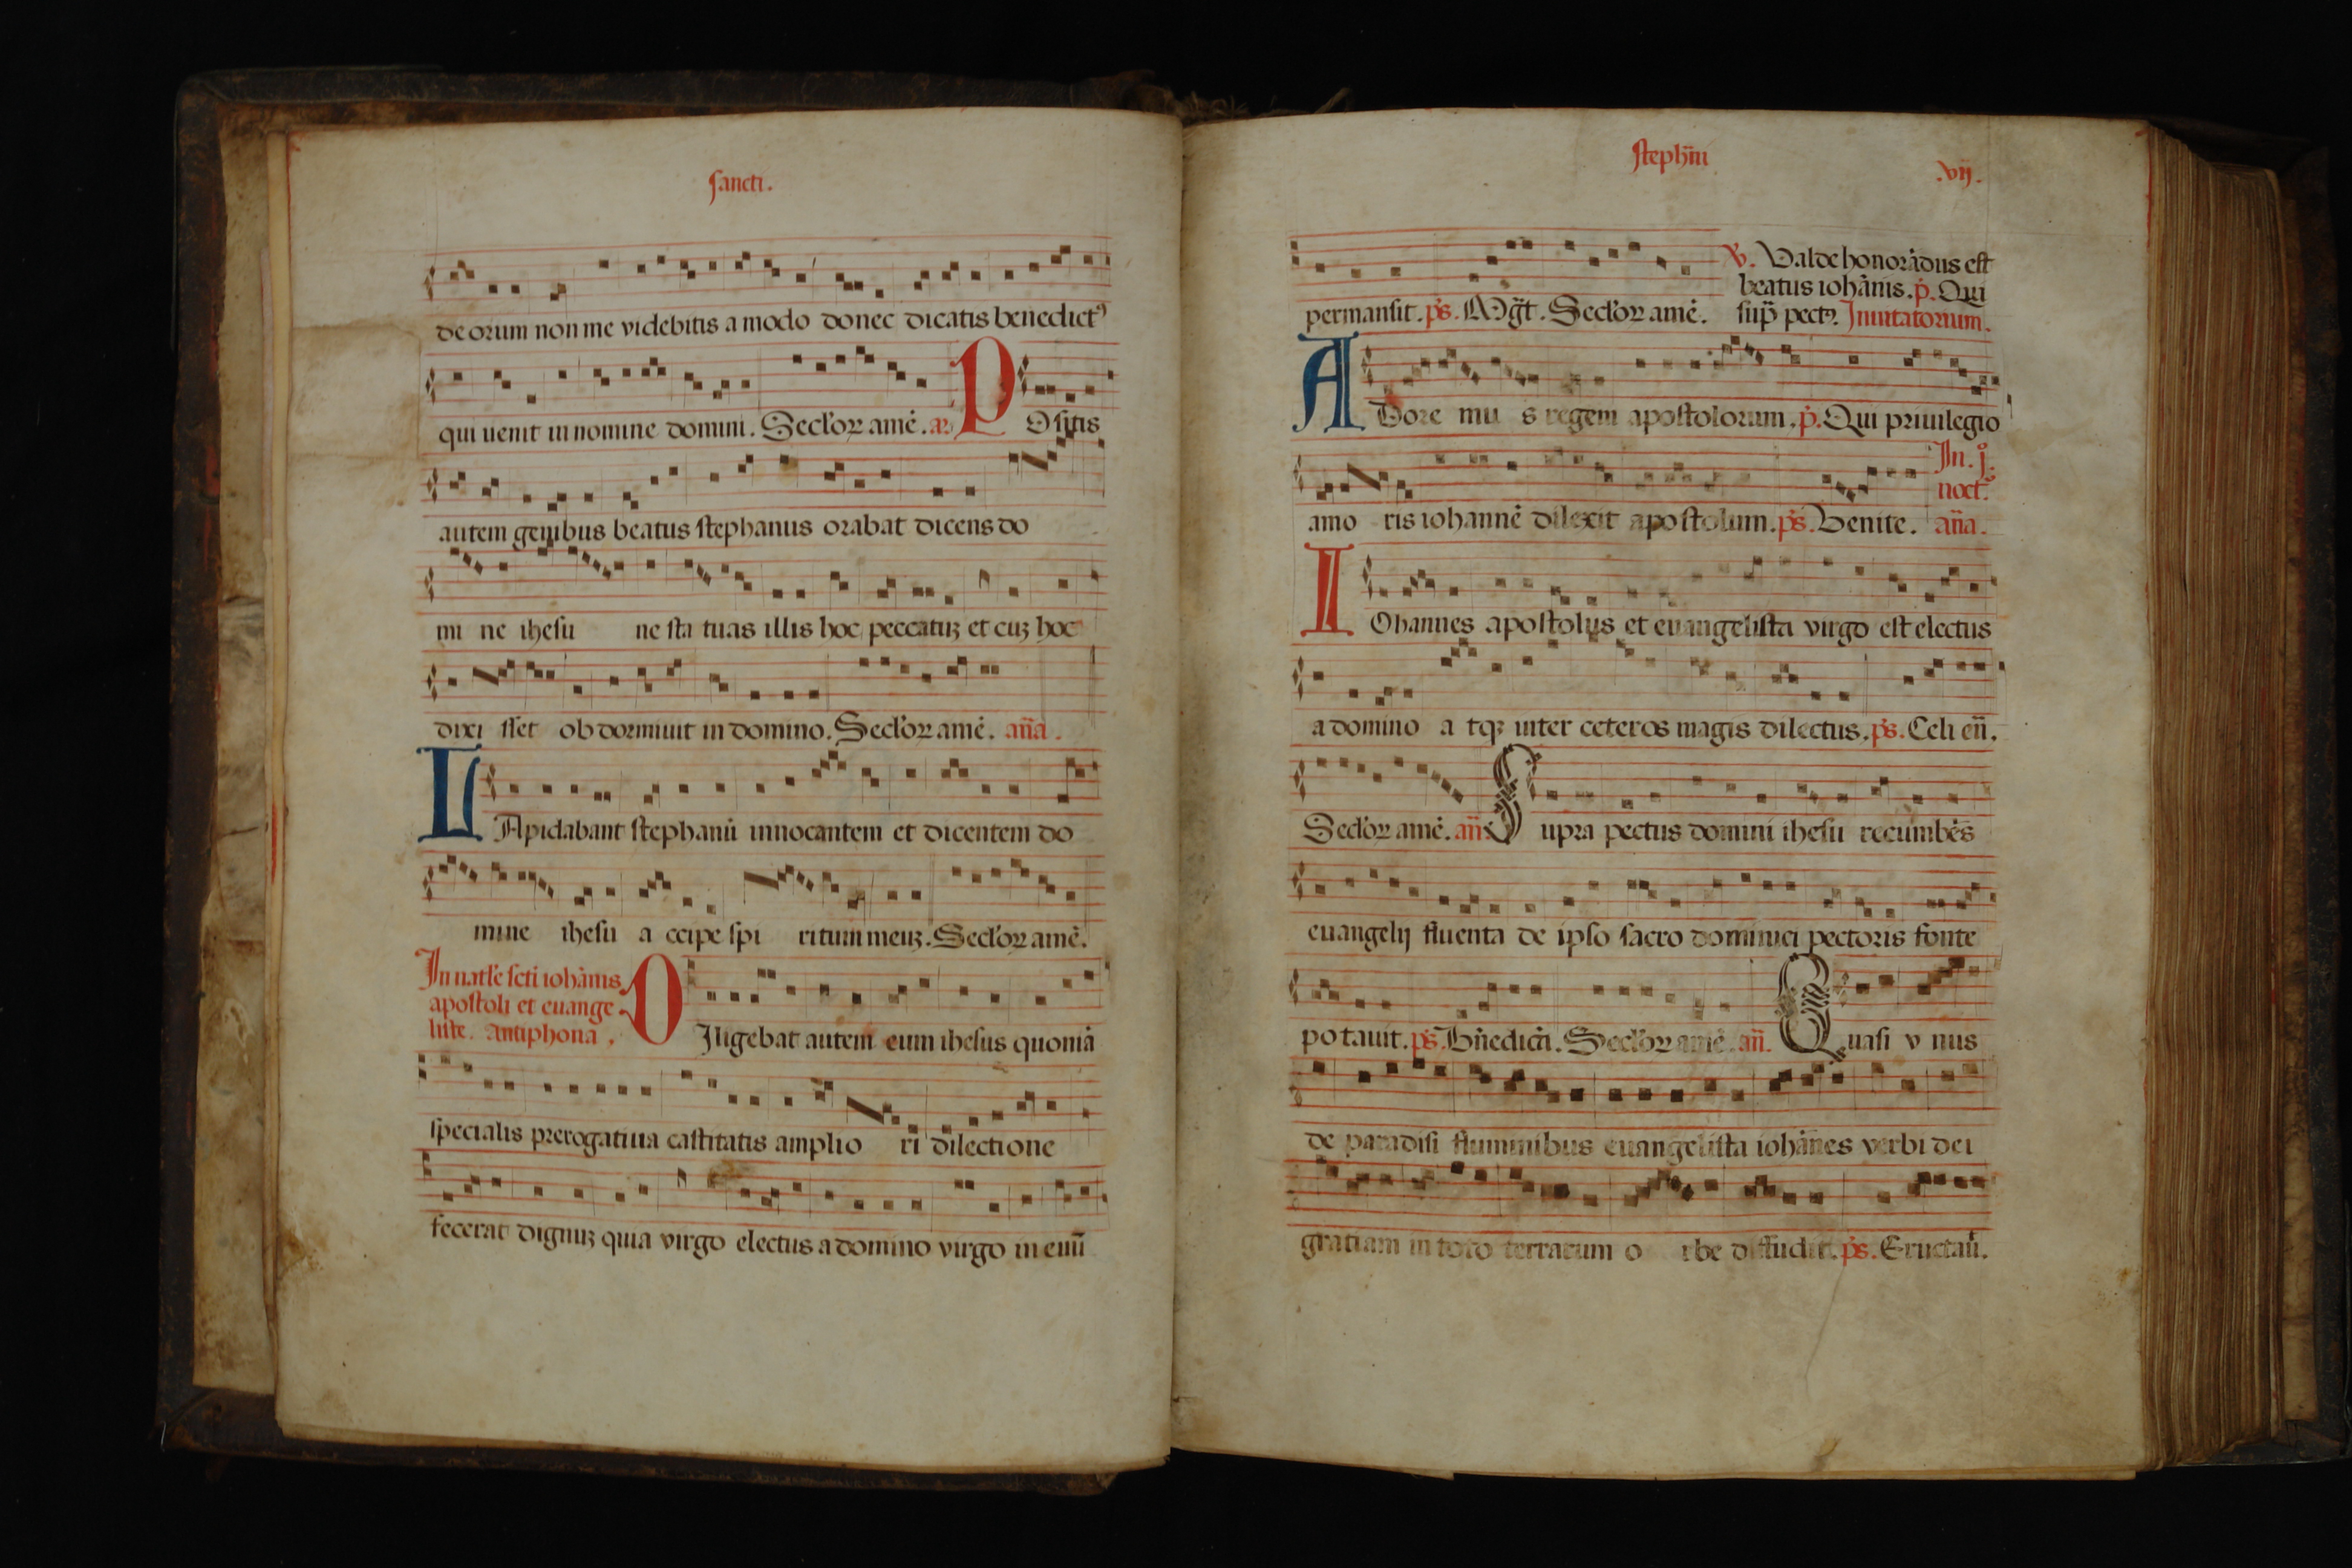 sancti.
deorum non me videbitis a modo donec dicatis benedictꝰ
qui uenit in nomine domini. Seclʼoꝝ amē. añ Ositis
autem genibus beatus stephanus orabat dicens do
mi ne ihesu ne sta tuas illis hoc peccatuꝫ et cuꝫ hoc
dixi sset ob dormiuit in domino. Seclʼoꝝ amē. aña.
LApidabant stephanū innocantem et dicentem do
mine ihesu a ccipe spi ritum meuꝫ. Seclʼoꝝ amē.
In natłe scti iohānis
apostoli et euange
liste. Antiphona.
DIligebat autem eum ihesus quoniā
specialis prerogatiua castitatis amplio ri dilectione
fecerat dignuꝫ quia virgo electus a domino virgo in euū
stephm̄
.vij.
permansit. ps. Mgt̄. Seclʼoꝝ amē.
℣. Valde honorādus est
beatus iohānis. p̄. Qui
sup̄ pectꝰ. Inuitatorium.
ADore mu s regem apostolorum. p̄. Qui priuilegio
amo ris iohannē dilexit apostolum. ps. Venite.
In. j.
noct.
aña.
IOhannes apostolus et euangelista virgo est electus
a domino a tqꝫ inter ceteros magis dilectus. ps. Celi eñ.
Seclʼoꝝ amē. añ. Supra pectus domini ihesu recumbēs
euangelij fluenta de ipso sacro dominici pectoris fonte
potauit. ps. Bn̄edicā. Seclʼoꝝ amē. añ. Quasi v nus
de paradisi fluminibus euangelista iohānes verbi dei
gratiam in toto terrarum o rbe diffudit. ps. Eructaū.